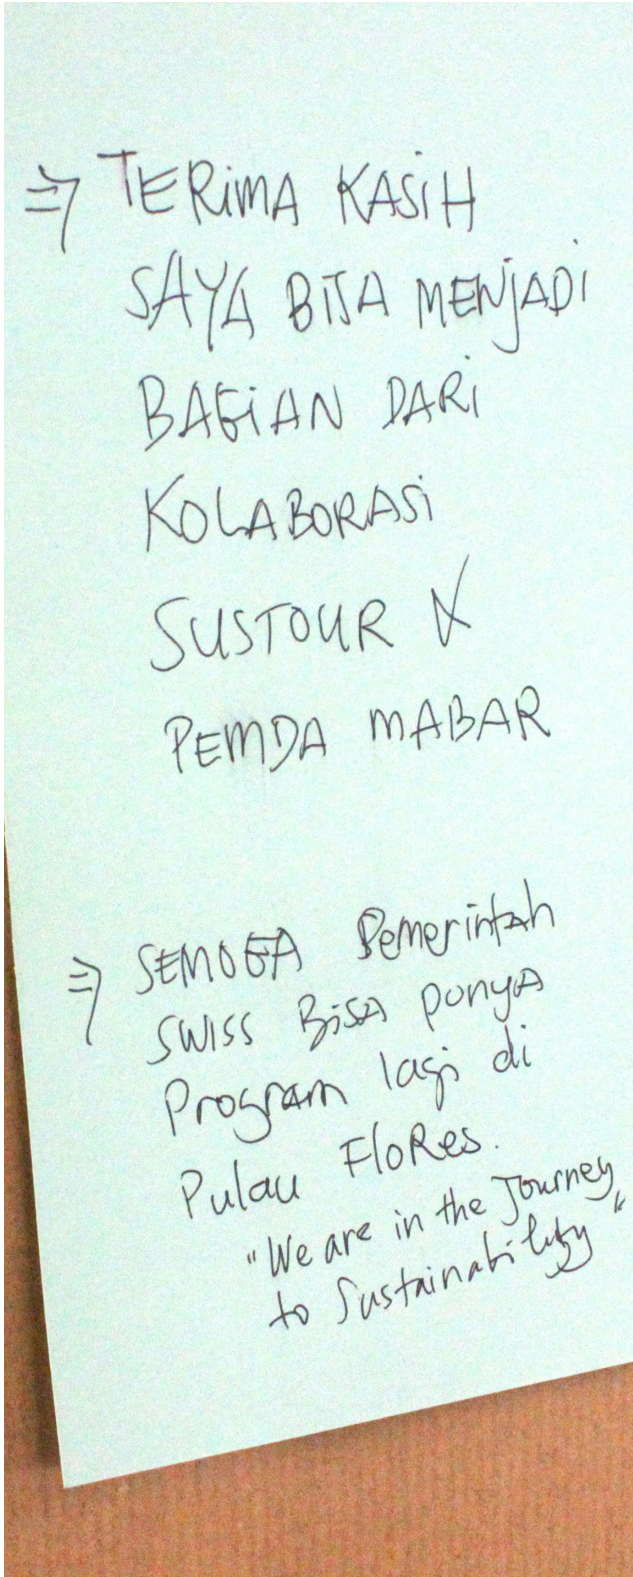 ⇒ TERIMA KASIH
SAYA BISA MENJADI
BAGIAN DARI
KOLABORASI
SUSTOUR X
PEMDA MABAR
⇒ SEMOGA Pemerintah
SWISS BISA punya
Program lagi di
Pulau FloRes.
"We are in the Journey
to Sustainability"